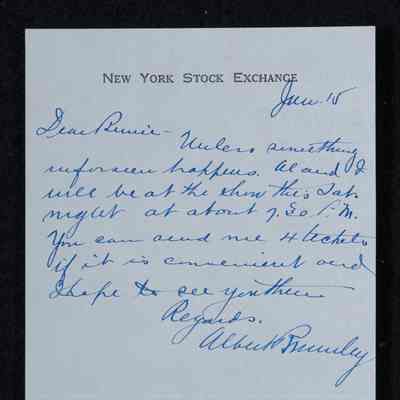 NEW YORK STOCK EXCHANGE
Jan. 15
Dear Bernie -
Unless something
unforseen happens. Al and I
will be at the show this Sat.
night at about 7.30 P.M.
You can send me 4 tickets
if it is convenient and
I hope to see you then
Regards.
Albert